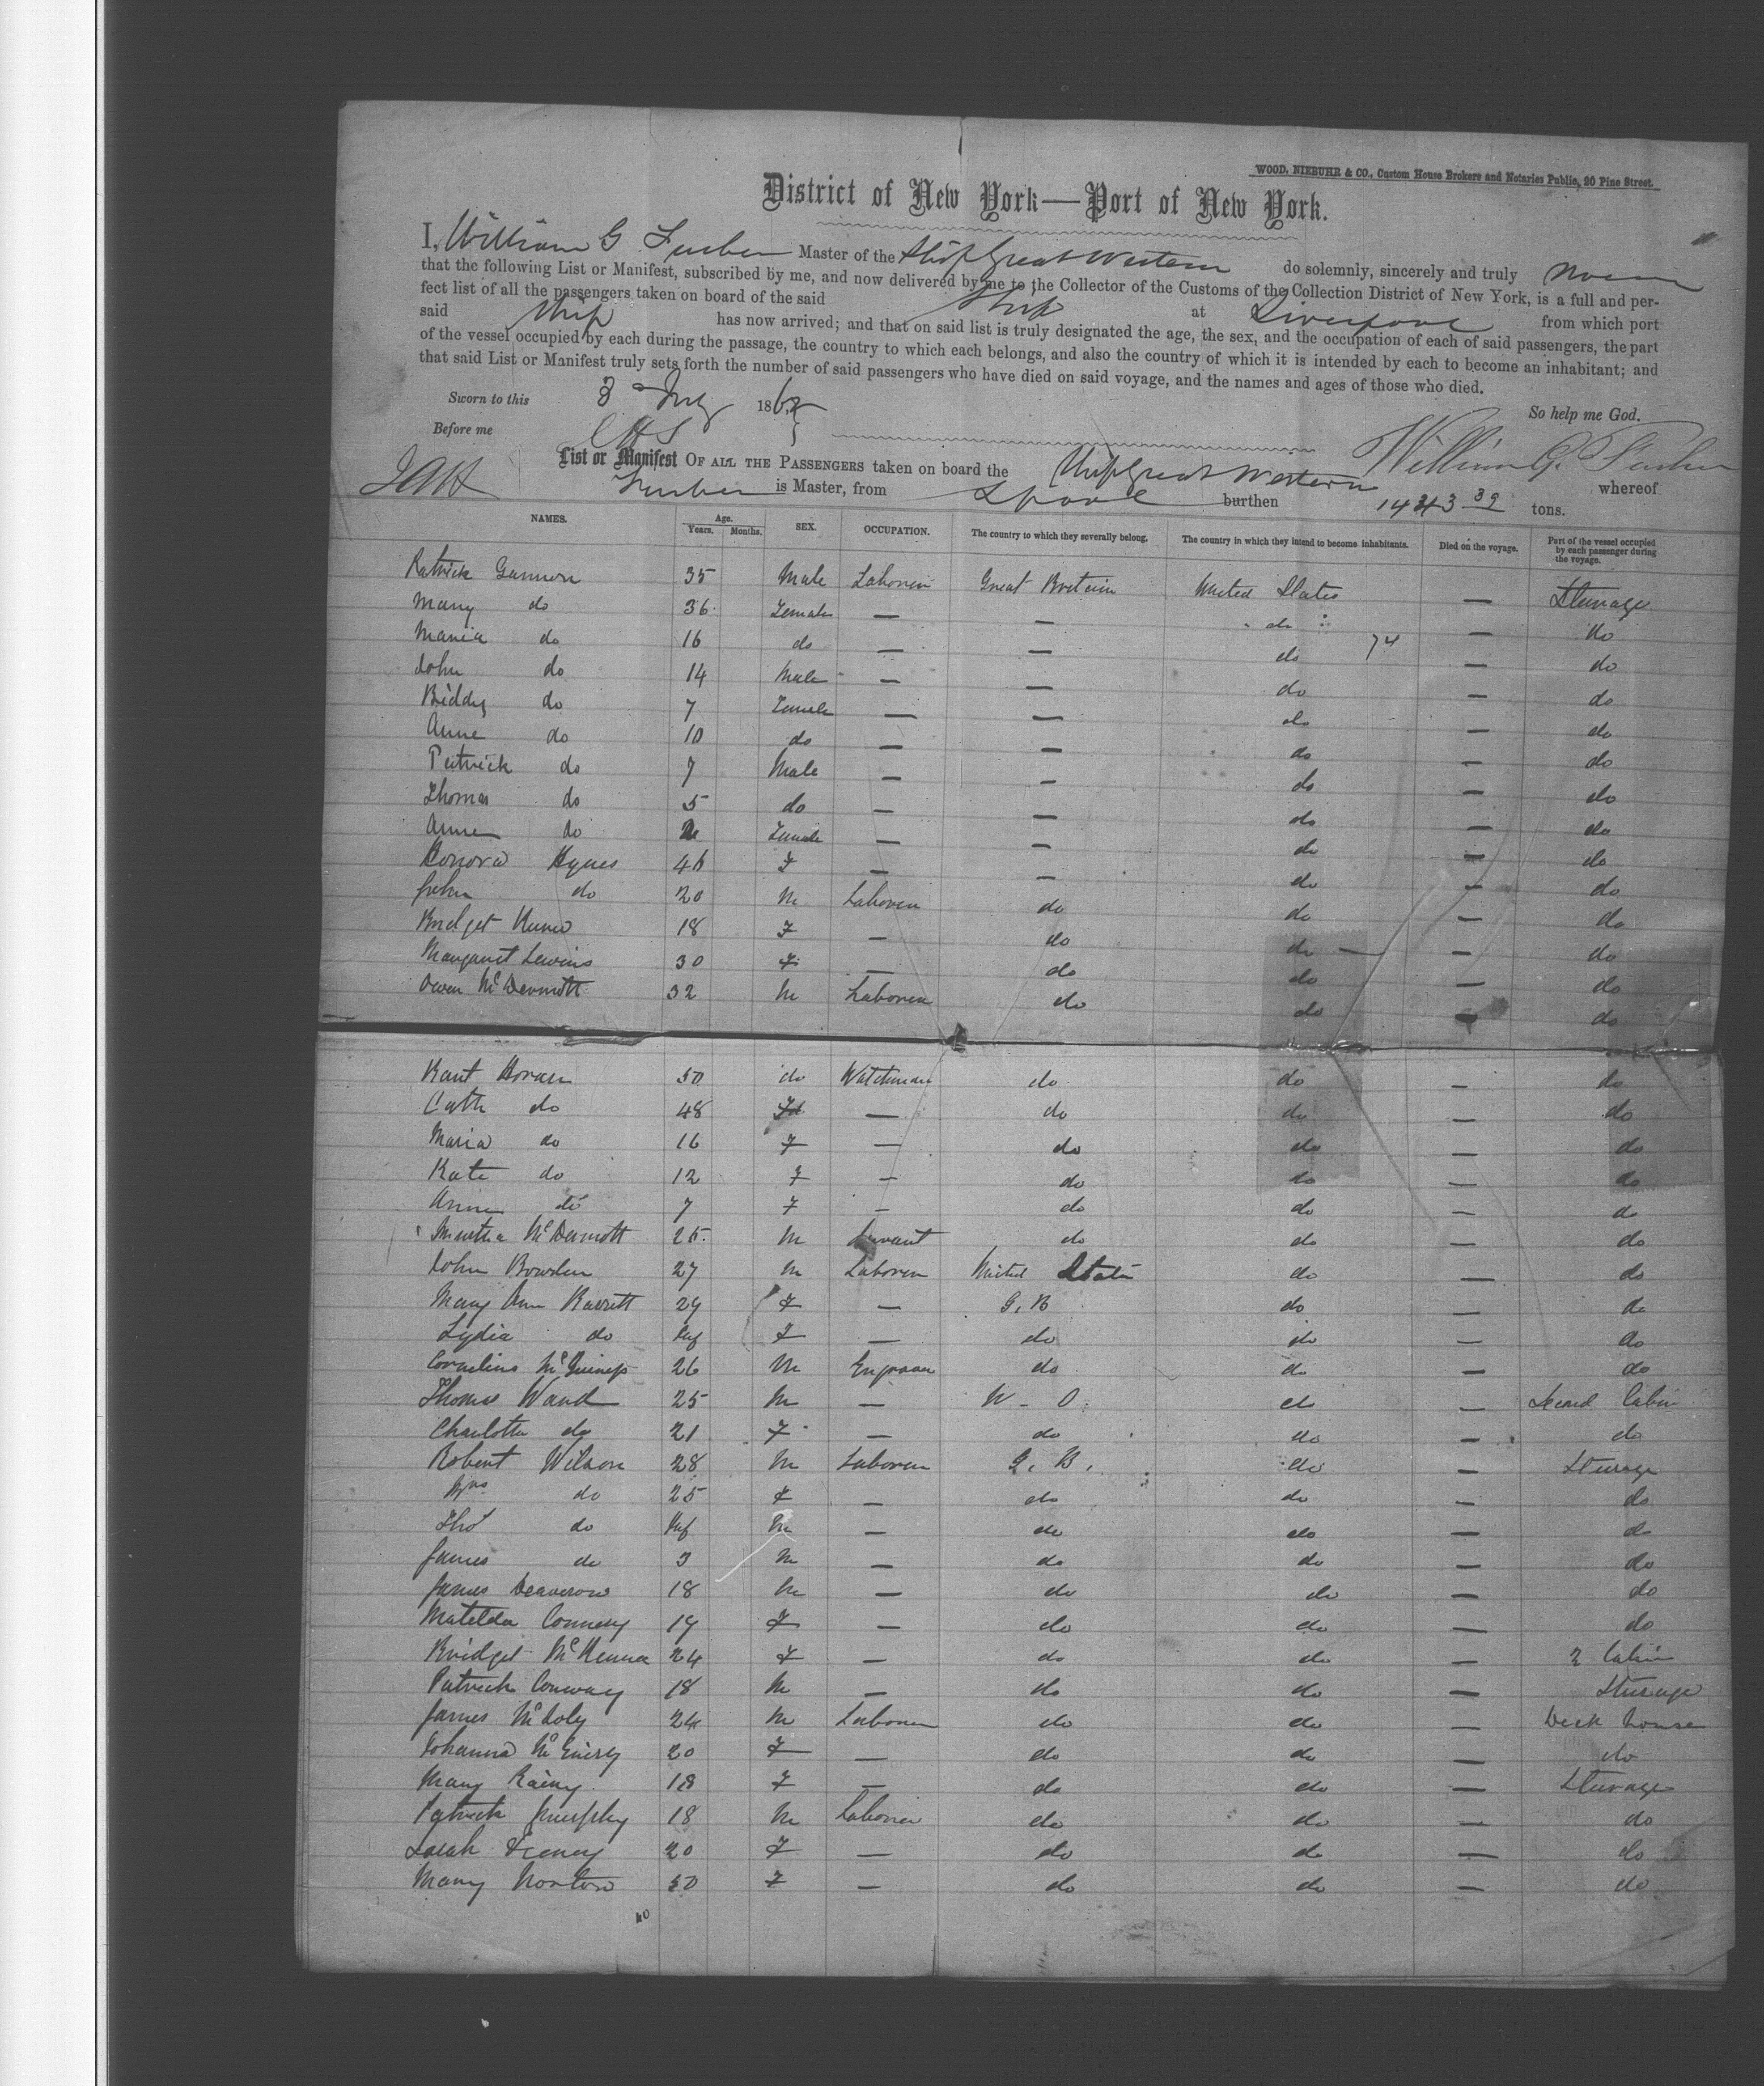 WOOD, NIEBUHR & CO., Custom House Brokers and Notaries Public, 20 Pine Street.
District of New York—Port of New York.
I, William G Furber Master of the Ship Great Western do solemnly, sincerely and truly
that the following List or Manifest, subscribed by me, and now delivered by me to the Collector of the Customs of the Collection District of New York, is a full and per-
fect list of all the passengers taken on board of the said Ship at Liverpool from which port
said Ship has now arrived; and that on said list is truly designated the age, the sex, and the occupation of each of said passengers, the part
of the vessel occupied by each during the passage, the country to which each belongs, and also the country of which it is intended by each to become an inhabitant; and
that said List or Manifest truly sets forth the number of said passengers who have died on said voyage, and the names and ages of those who died.
Sworn to this 3 186 So help me God.
Before me William G. Furber
List or Manifest OF ALL THE PASSENGERS taken on board the Ship Great Western whereof
Furber is Master, from Lpool burthen 1443 39 tons.
NAMES. Age. Years. Months. SEX. OCCUPATION. The country to which they severally belong. The country in which they intend to become inhabitants. Died on the voyage. Part of the vessel occupied by each passenger during the voyage.
Patrick Gannon 35 Male Laborer Great Britain United States — Steerage
Mary do 36 Female — — do — do
Maria do 16 do — — do 74 — do
John do 14 Male — — do — do
Biddy do 7 Female — — do — do
Anne do 10 do — — do — do
Patrick do 7 Male — — do — do
Thomas do 5 do — — do — do
Anne do Female — — do — do
Honora Hynes 46 F — — do — do
John do 20 M Laborer do do — do
Bridget 18 F — do do — do
Margaret Lewins 30 F — do do — do
Owen McDermott 32 M Laborer do do — do
Horan 50 do Watchman do do — do
Cath do 48 — do do — do
Maria do 16 F — do do — do
Kate do 12 F — do do — do
Anne do 7 F — do do — do
McDermott 25 M Servant do do — do
John Bowden 27 M Laborer United States do — do
Mary Ann Barrett 29 F — G. B do — do
Lydia do Inf F — do do — do
Cornelius 26 M Engraver do do — do
Thomas Ward 25 M — do — Second Cabin
Charlotte do 21 F — do do — do
Robert Wilson 28 M Laborer G. B. do — Steerage
Mrs do 25 F — do do — do
Thos do Inf M — do do — do
James do 3 M — do do — do
James 18 M — do do — do
Matilda Connery 19 F — do do — do
Bridget McKenna 24 F — do do — 2 Cabin
Patrick Conway 18 M — do do — Steerage
James 24 M Laborer do do — Deck house
Johanna McEniry 20 F — do do — do
Mary Rainy 18 F — do do — Steerage
Patrick Murphy 18 M Laborer do do — do
Sarah Feeney 20 F — do do — do
Mary Norton 50 F — do do — do
40